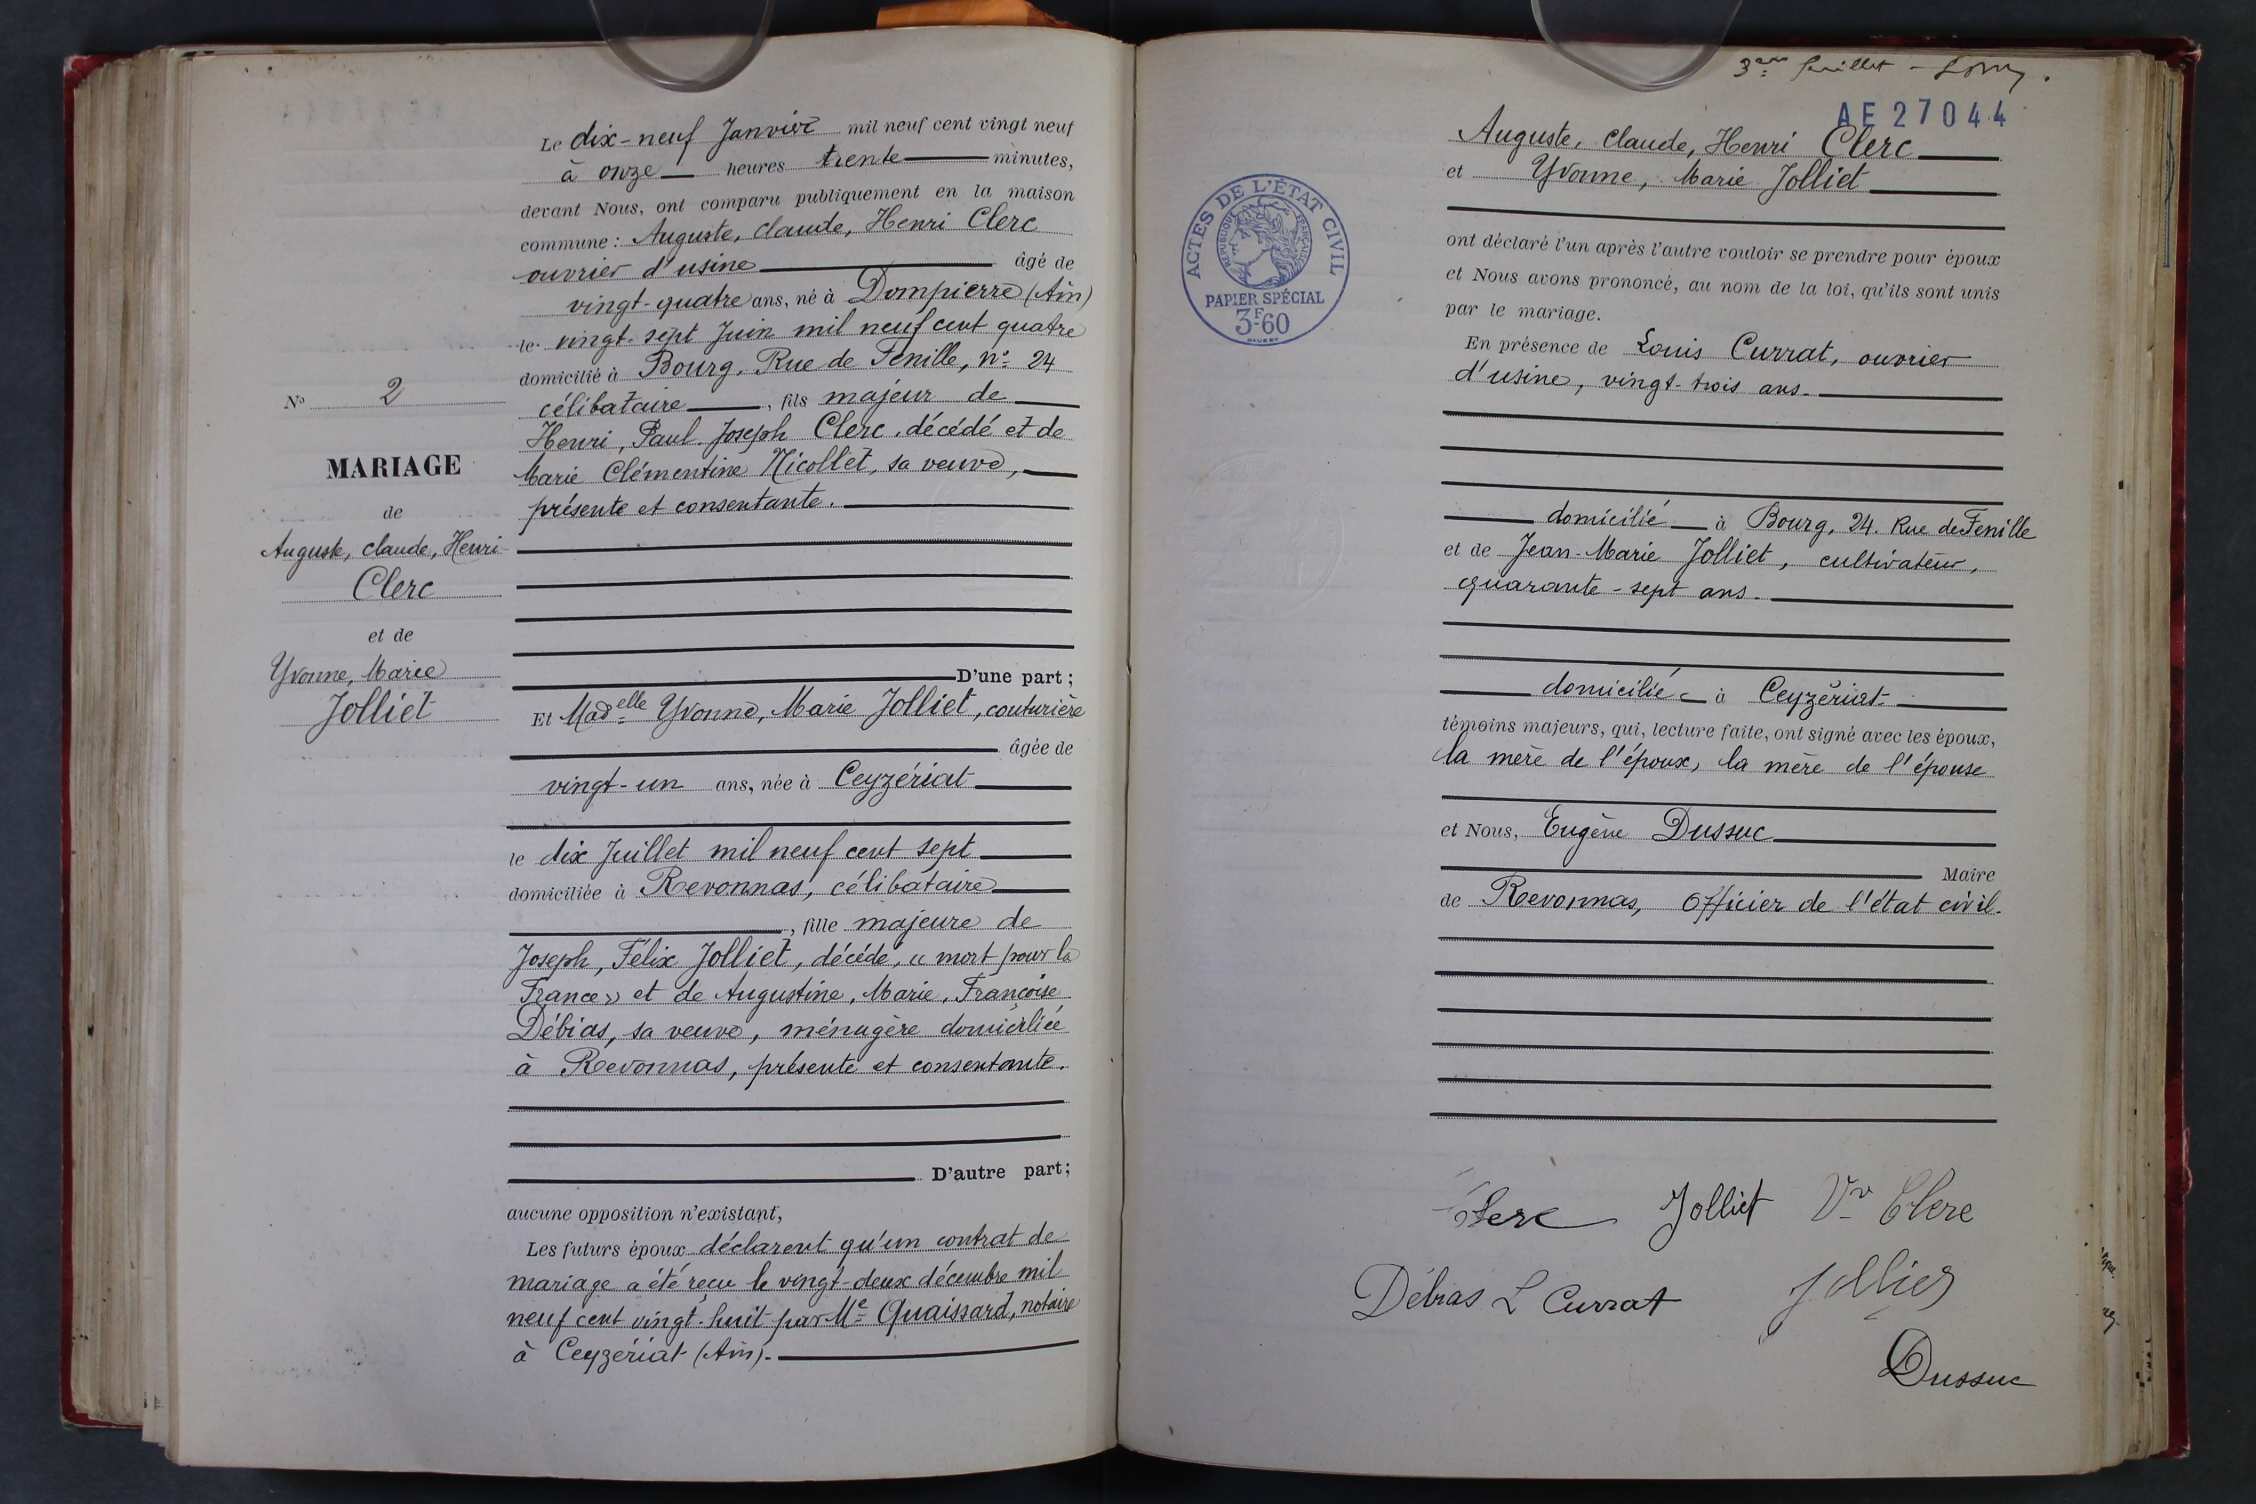 N° 2
MARIAGE
de
Auguste, Claude, Henri
Clerc
et de
Yvonne, Marie
Jolliet
Le dix-neuf Janvier mil neuf cent vingt neuf
à onze heures trente minutes,
devant Nous, ont comparu publiquement en la maison
commune : Auguste, Claude, Henri Clerc
ouvrier d'usine âgé de
vingt-quatre ans, né à Dompierre (Ain)
le vingt-sept Juin mil neuf cent quatre
domicilié à Bourg, Rue de Fenille, n° 24
célibataire, fils majeur de
Henri, Paul Joseph Clerc, décédé et de
Marie Clémentine Nicollet, sa veuve,
présente et consentante.
D'une part ;
Et Madelle Yvonne, Marie Jolliet, couturière
âgée de
vingt-un ans, née à Ceyzériat
le dix Juillet mil neuf cent sept
domiciliée à Revonnas, célibataire
, fille majeure de
Joseph, Félix Jolliet, décédé, « mort pour la
France » et de Augustine, Marie, Françoise
Débias, sa veuve, ménagère domiciliée
à Revonnas, présente et consentante.
D'autre part ;
aucune opposition n'existant,
Les futurs époux déclarent qu'un contrat de
mariage a été reçu le vingt-deux décembre mil
neuf cent vingt-huit par Me Quaissard, notaire
à Ceyzériat (Ain).
3eme feuillet
AE 27044
ACTES DE L'ÉTAT CIVIL
RÉPUBLIQUE FRANÇAISE
PAPIER SPÉCIAL
3F60
Auguste, Claude, Henri Clerc
et Yvonne, Marie Jolliet
ont déclaré l'un après l'autre vouloir se prendre pour époux
et Nous avons prononcé, au nom de la loi, qu'ils sont unis
par le mariage.
En présence de Louis Currat, ouvrier
d'usine, vingt-trois ans.
domicilié à Bourg, 24. Rue de Fenille
et de Jean-Marie Jolliet, cultivateur,
quarante-sept ans.
domicilié à Ceyzériat
témoins majeurs, qui, lecture faite, ont signé avec les époux,
la mère de l'époux, la mère de l'épouse
et Nous, Eugène Dussuc
Maire
de Revonnas, Officier de l'état civil.
Clerc Jolliet Vv Clerc
Débias L Currat Jolliet
Dussuc